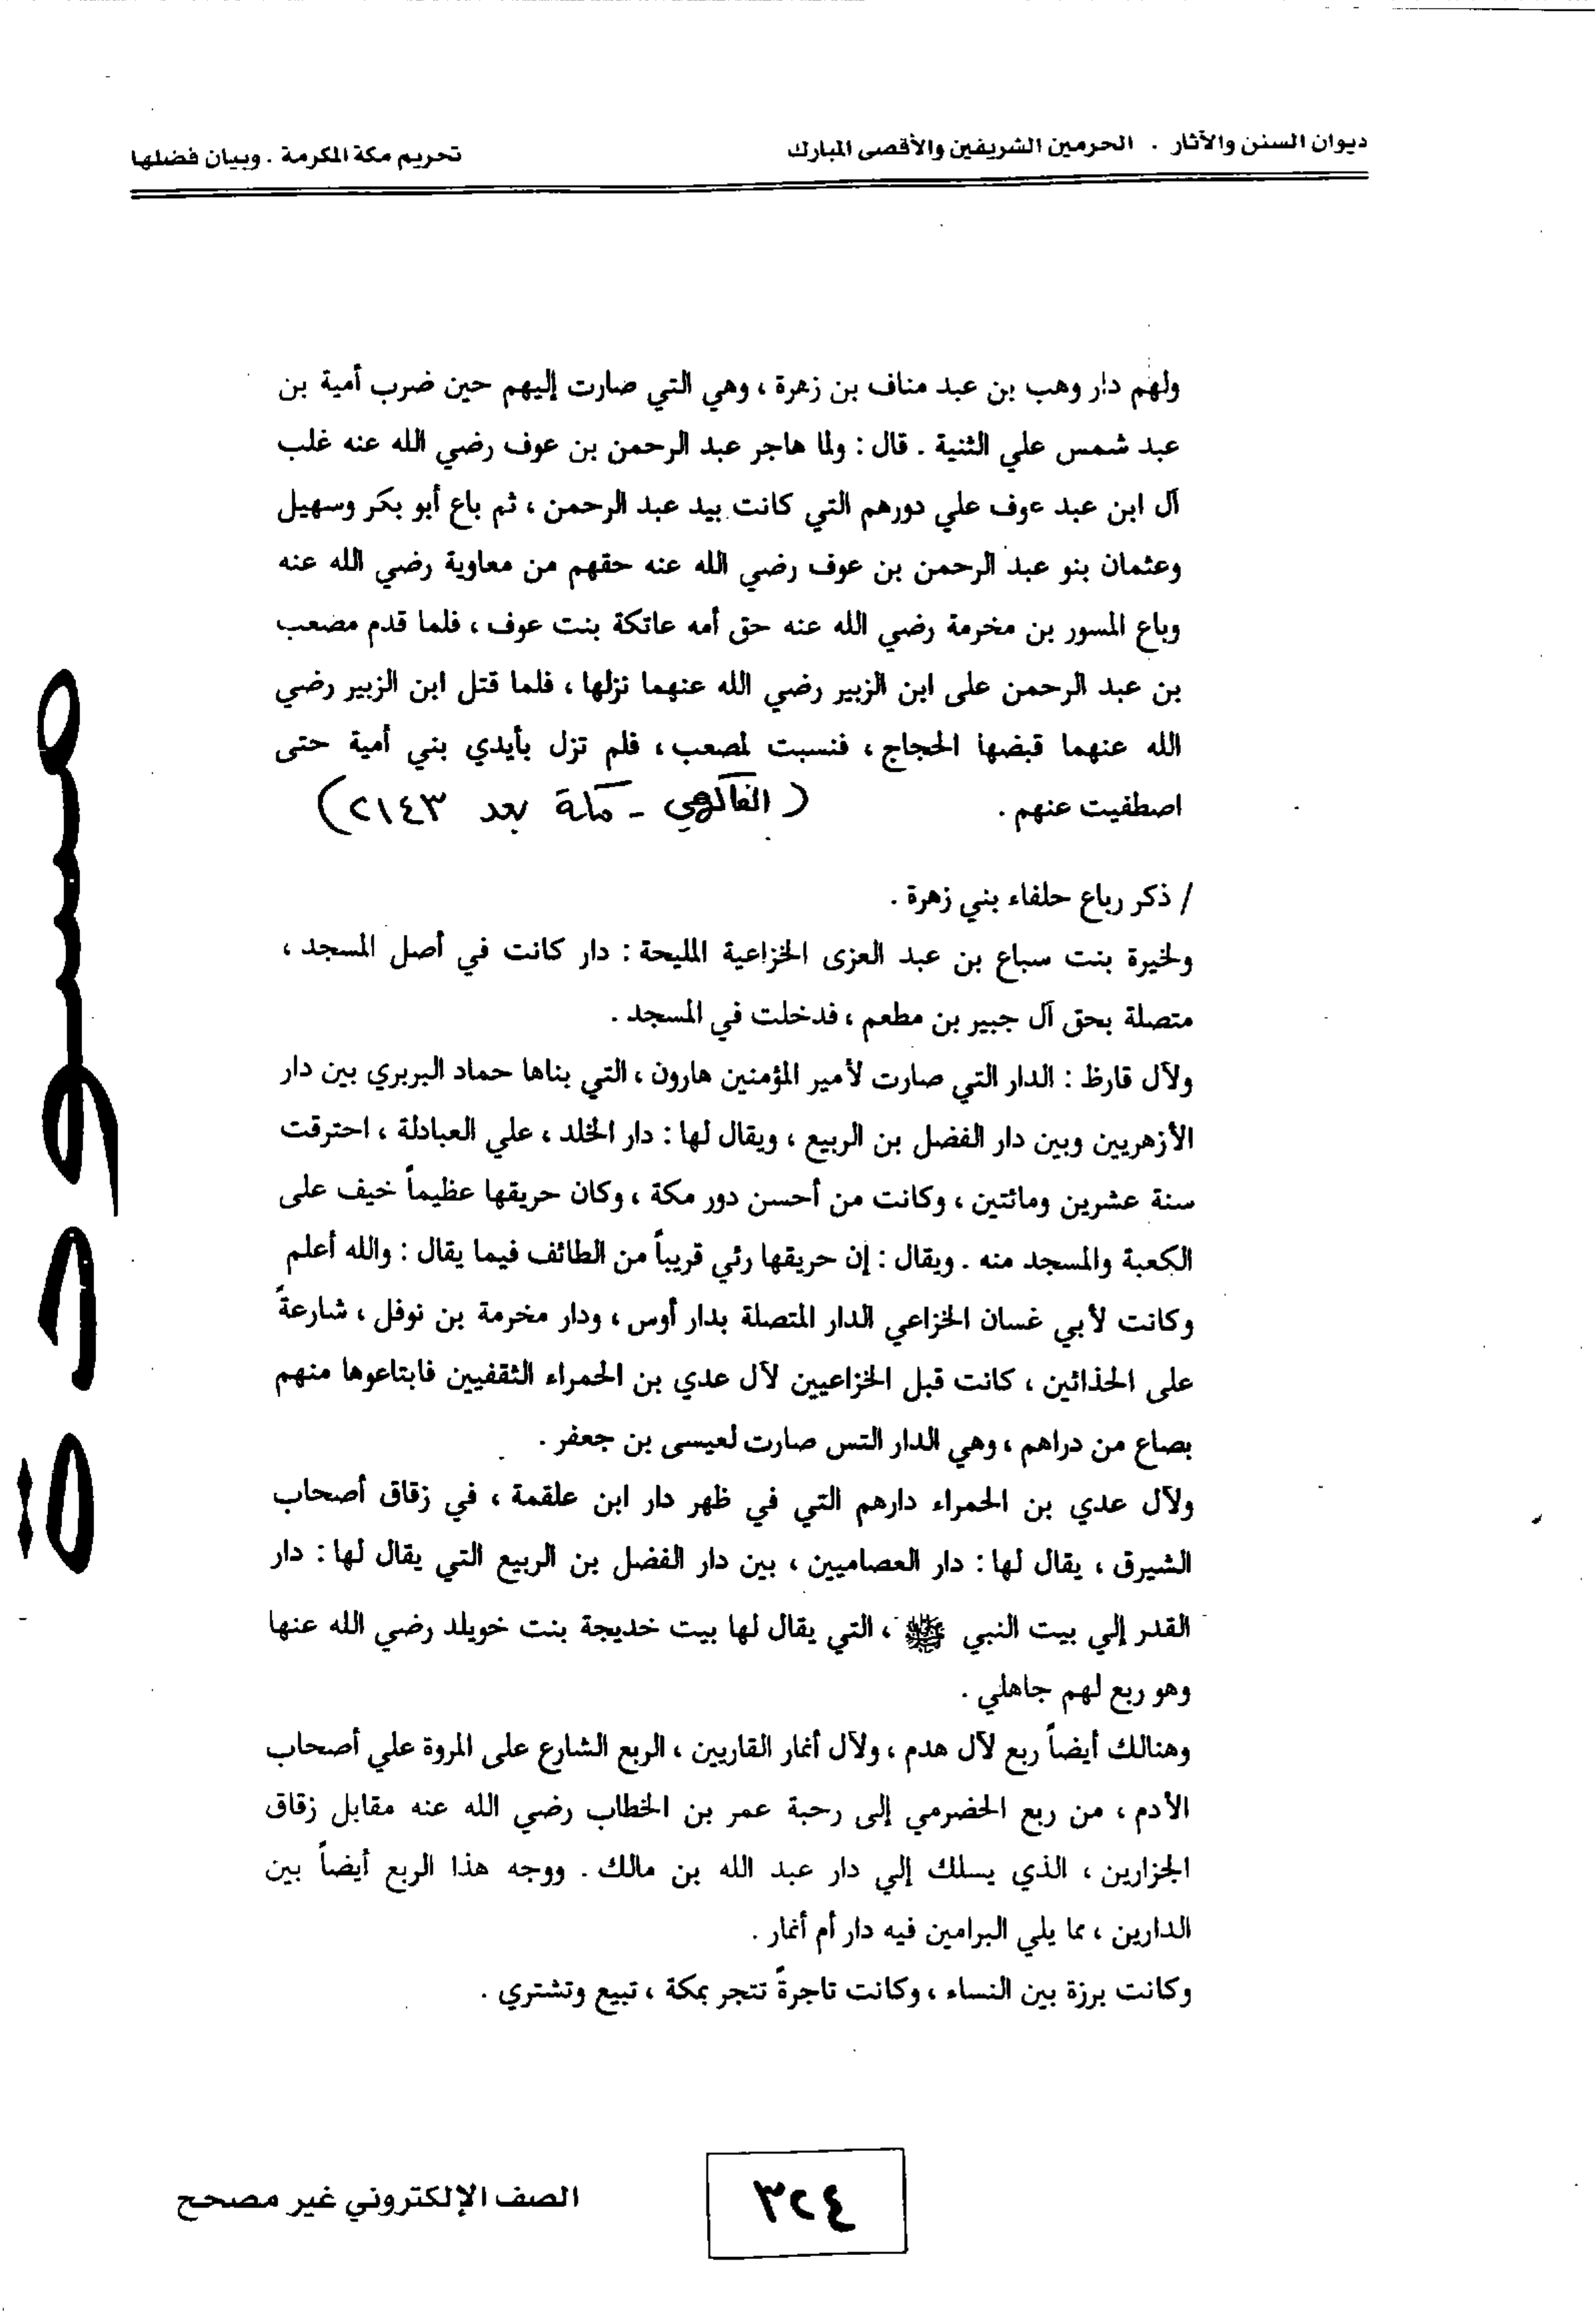 ديوان السنن والآثار . الحرمين الشريفين والأقصى المبارك
تحريم مكة المكرمة . وبيان فضلها
ولهم دار وهب بن عبد مناف بن زهرة ، وهي التي صارت إليهم حين ضرب أمية بن
عبد شمس علي الثنية . قال : ولما هاجر عبد الرحمن بن عوف رضي الله عنه غلب
آل ابن عبد عوف علي دورهم التي كانت بيد عبد الرحمن ، ثم باع أبو بكر وسهيل
وعثمان بنو عبد الرحمن بن عوف رضي الله عنه حقهم من معاوية رضي الله عنه
وباع المسور بن مخرمة رضي الله عنه حق أمه عاتكة بنت عوف ، فلما قدم مصعب
بن عبد الرحمن على ابن الزبير رضي الله عنهما نزلها ، فلما قتل ابن الزبير رضي
الله عنهما قبضها الحجاج ، فنسبت لمصعب ، فلم تزل بأيدي بني أمية حتى
اصطفيت عنهم . ( الفاكهي - مكة بعد ٢١٤٣ )
/ ذكر رباع حلفاء بني زهرة .
ولخيرة بنت سباع بن عبد العزى الخزاعية المليحة : دار كانت في أصل المسجد ،
متصلة بحق آل جبير بن مطعم ، فدخلت في المسجد .
ولآل قارظ : الدار التي صارت لأمير المؤمنين هارون ، التي بناها حماد البربري بين دار
الأزهريين وبين دار الفضل بن الربيع ، ويقال لها : دار الخلد ، علي العبادلة ، احترقت
سنة عشرين ومائتين ، وكانت من أحسن دور مكة ، وكان حريقها عظيماً خيف على
الكعبة والمسجد منه . ويقال : إن حريقها رئي قريباً من الطائف فيما يقال : والله أعلم
وكانت لأبي غسان الخزاعي الدار المتصلة بدار أوس ، ودار مخرمة بن نوفل ، شارعةً
على الحذائين ، كانت قبل الخزاعيين لآل عدي بن الحمراء الثقفيين فابتاعوها منهم
بصاع من دراهم ، وهي الدار التس صارت لعيسى بن جعفر .
ولآل عدي بن الحمراء دارهم التي في ظهر دار ابن علقمة ، في زقاق أصحاب
الشيرق ، يقال لها : دار العصاميين ، بين دار الفضل بن الربيع التي يقال لها : دار
القدر إلي بيت النبي ﷺ ، التي يقال لها بيت خديجة بنت خويلد رضي الله عنها
وهو ربع لهم جاهلي .
وهنالك أيضاً ربع لآل هدم ، ولآل أنمار القاريين ، الربع الشارع على المروة علي أصحاب
الأدم ، من ربع الحضرمي إلى رحبة عمر بن الخطاب رضي الله عنه مقابل زقاق
الجزارين ، الذي يسلك إلي دار عبد الله بن مالك . ووجه هذا الربع أيضاً بين
الدارين ، مما يلي البرامين فيه دار أم أنمار .
وكانت برزة بين النساء ، وكانت تاجرةً تتجر بمكة ، تبيع وتشتري .
مسودة
٤٢٣
الصف الإلكتروني غير مصحح